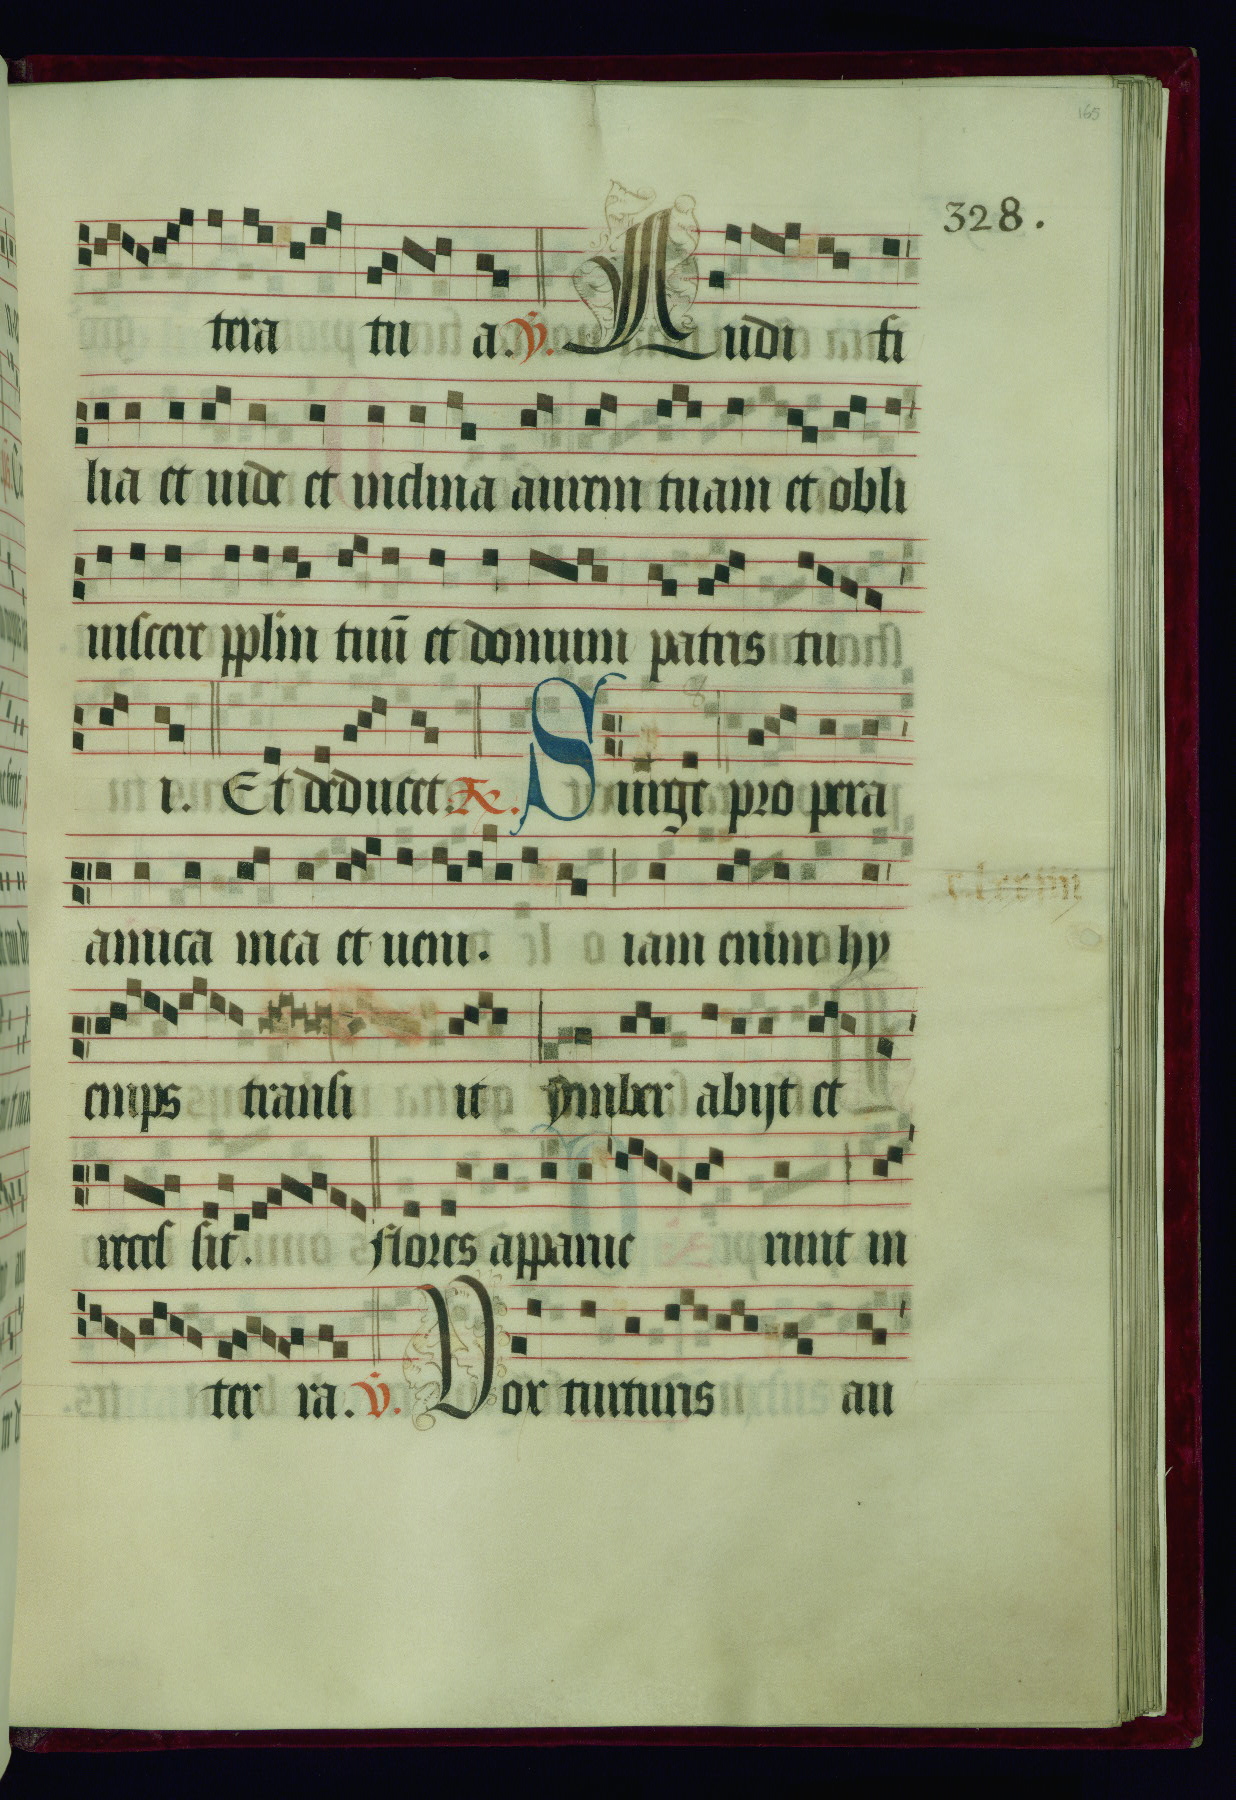 165
328.
tera tu a. ℣. Audi fi
lia et uide et inclina aurem tuam et obli
uiscere pplm tuū et domum patris tu
i. Et deducet. ℟. Surge propera
amica mea et ueni. iam enim hy
emps transi it ymber abijt et
recess sit. flores apparue runt in
ter ra. ℣. Vox turturis au